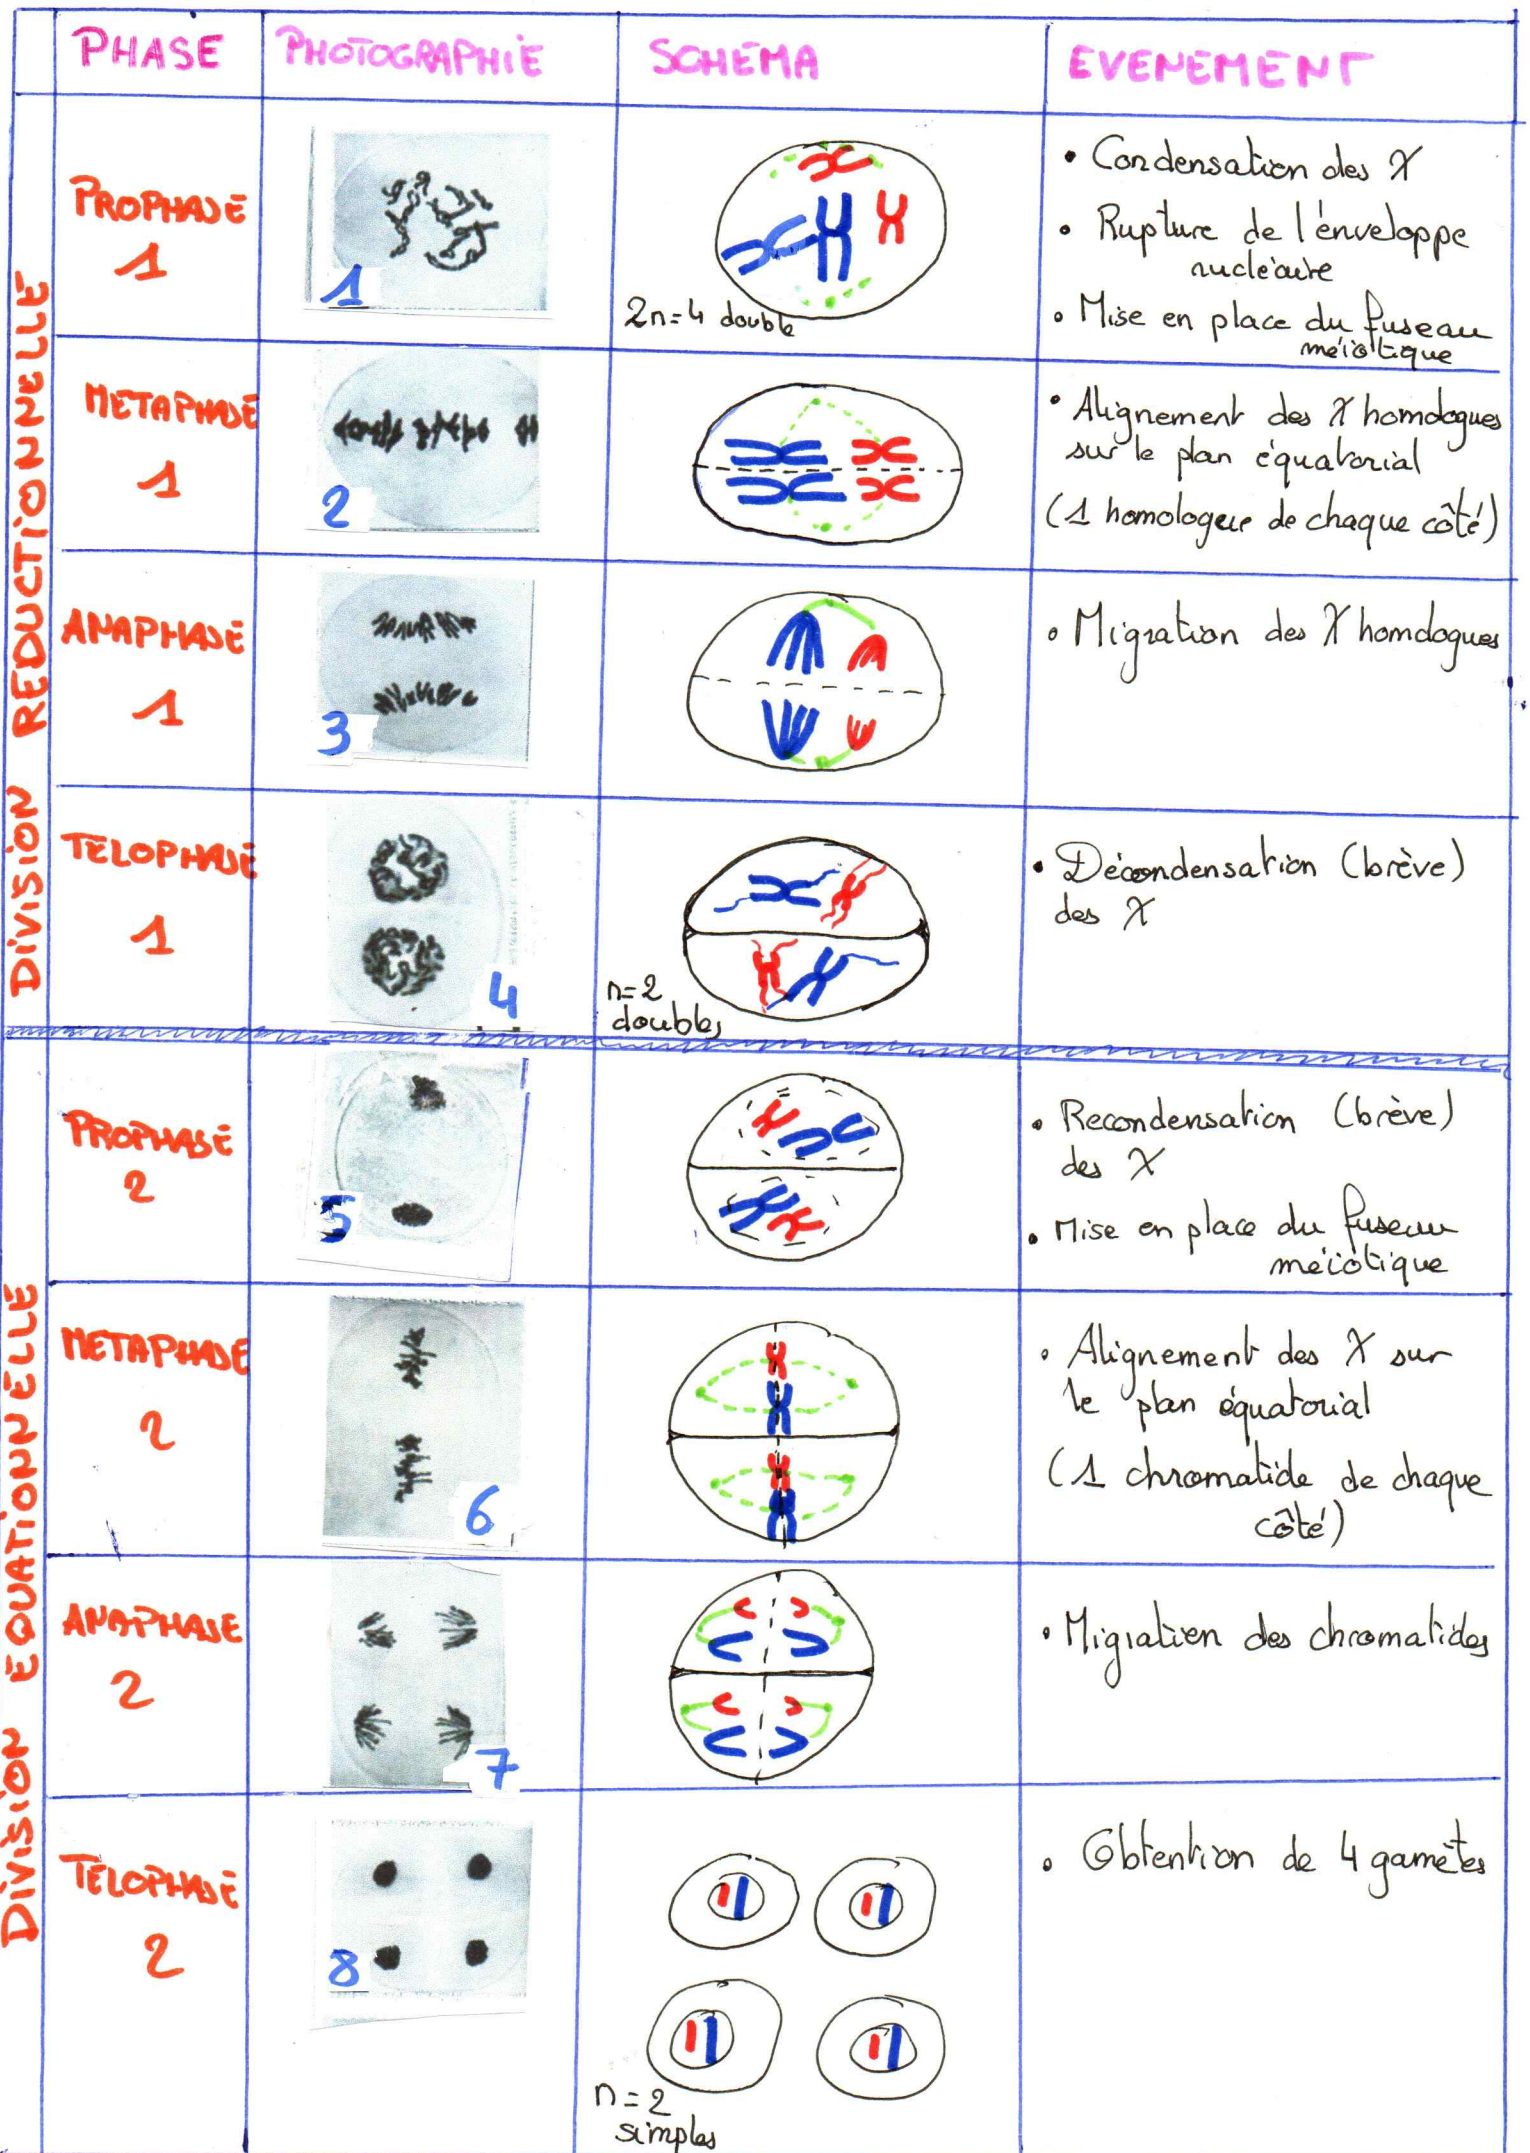 PHASE
PHOTOGRAPHIE
SCHEMA
EVENEMENT
DIVISION REDUCTIONNELLE
PROPHASE
1
1
2n=4 double
• Condensation des X
• Rupture de l'enveloppe
nucléaire
• Mise en place du fuseau
méiotique
METAPHASE
1
2
• Alignement des X homologues
sur le plan équatorial
(1 homologue de chaque côté)
ANAPHASE
1
3
• Migration des X homologues
TELOPHASE
1
4
n=2
doubles
• Décondensation (brève)
des X
DIVISION EQUATIONNELLE
PROPHASE
2
5
• Recondensation (brève)
des X
• Mise en place du fuseau
méiotique
METAPHASE
2
6
• Alignement des X sur
le plan équatorial
(1 chromatide de chaque
côté)
ANAPHASE
2
7
• Migration des chromatides
TELOPHASE
2
8
n=2
simples
• Obtention de 4 gamètes